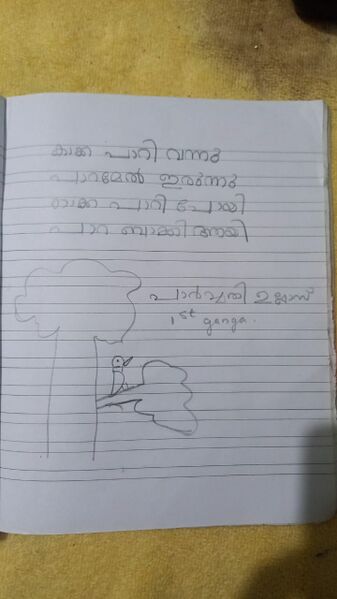 കാക്ക പാറി വന്നു
പാറമേൽ ഇരുന്നു
കാക്ക പാറി പോയി
പാറ ബാക്കി ആയി
പാർവ്വതി
1st ganga.